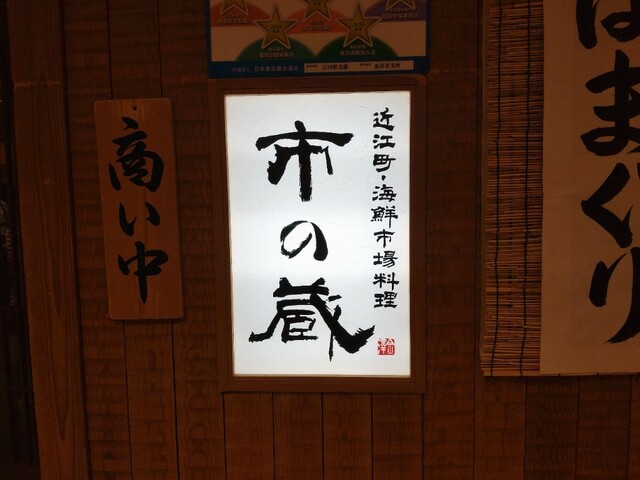 商い中
近江町・海鮮市場料理
市の蔵
はまぐり